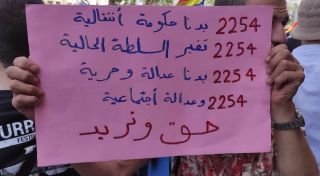 2254 بدنا حكومة أنتقالية
2254 تغير السلطة الحالية
2254 بدنا عدالة وحرية
2254 وعدالة أجتماعية
حق ونريد
URR